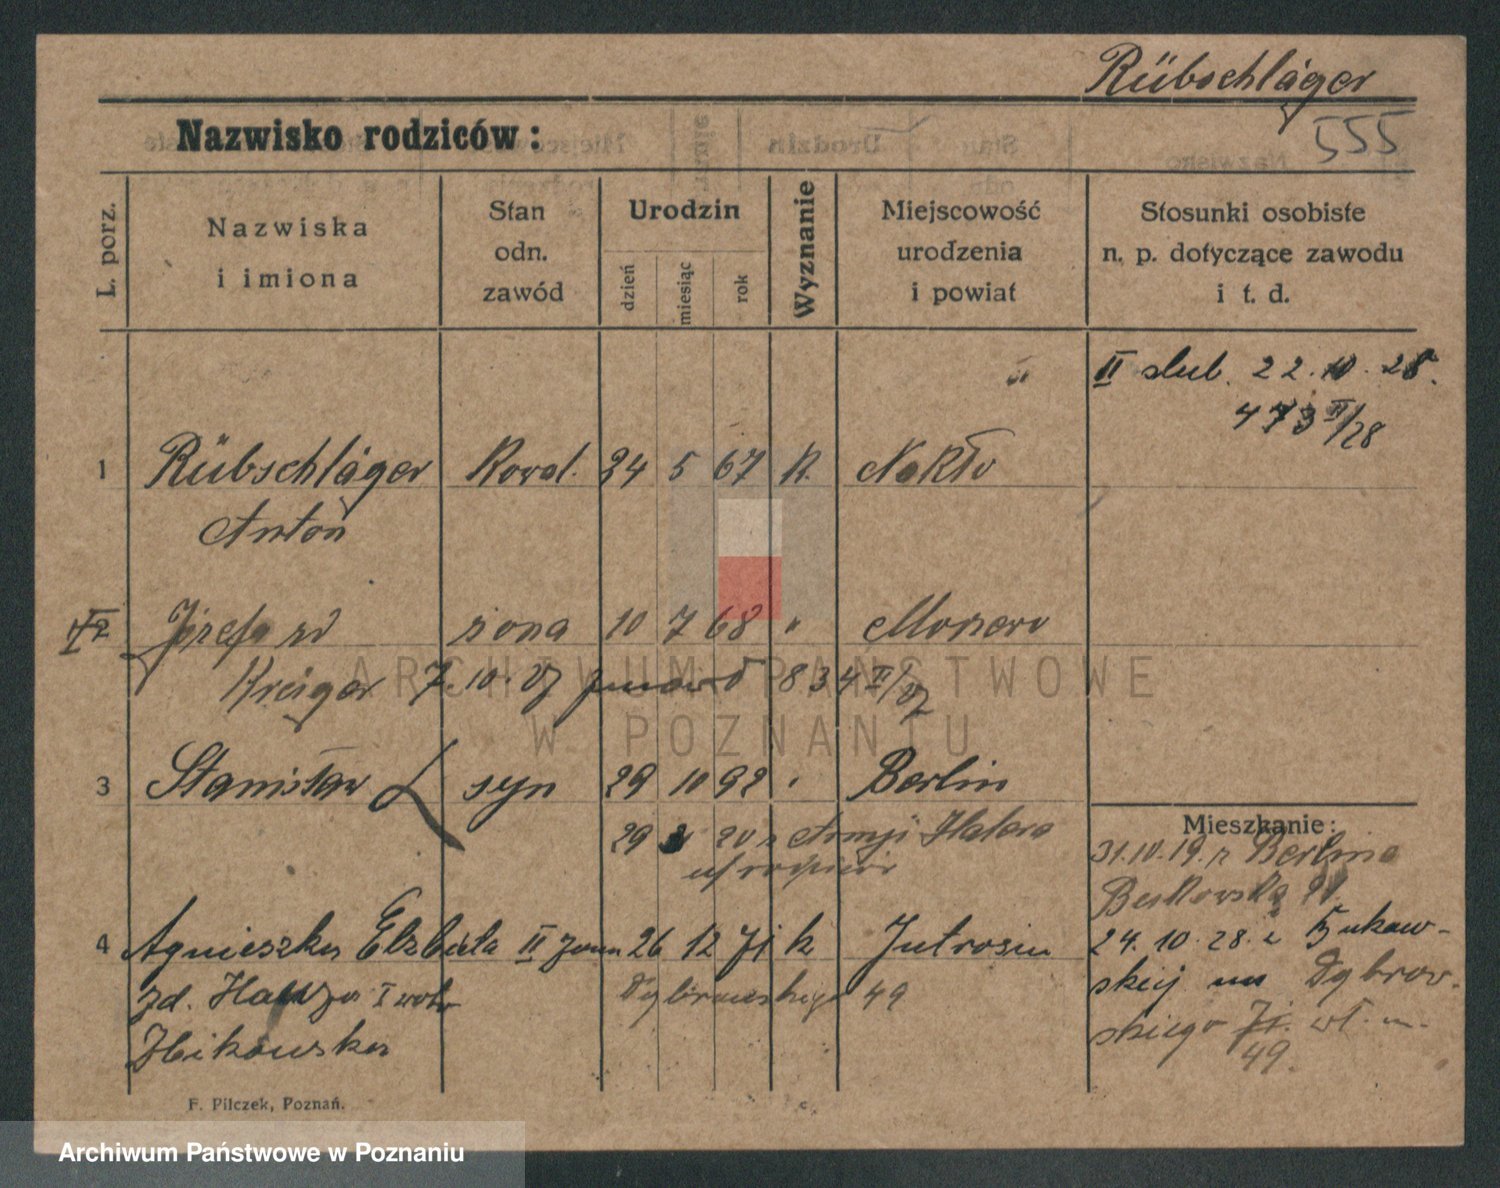 Rübschläger
Nazwisko rodziców:
555
L. porz.
Nazwiska
i imiona
Stan
odn.
zawód
Urodzin
dzień
miesiąc
rok
Wyznanie
Miejscowość
urodzenia
i powiat
Stosunki osobiste
n. p. dotyczące zawodu
i t. d.
II slub. 22.10.28.
473 II/28
1 Rübschläger Kowal. 24 5 67 K. Nakło
Anton
Józefa zd żona 10 7 68 "
Krüger 7.10. 834 II/
3 Stanisław syn 29 10 92 " Berlin
29 20 z Armji Halera
Mieszkanie:
31.10.19. z Berlina
4 Agnieszka Elżbieta II żona 26 12 71 k Jutrosin
24.10.28. z Łukaw-
skiej na Dąbrow-
zd. I
Dąbrowskiego 49
skiego 71. wł. m.
49.
F. Pilczek, Poznań.
ARCHIWUM PAŃSTWOWE
W POZNANIU
Archiwum Państwowe w Poznaniu